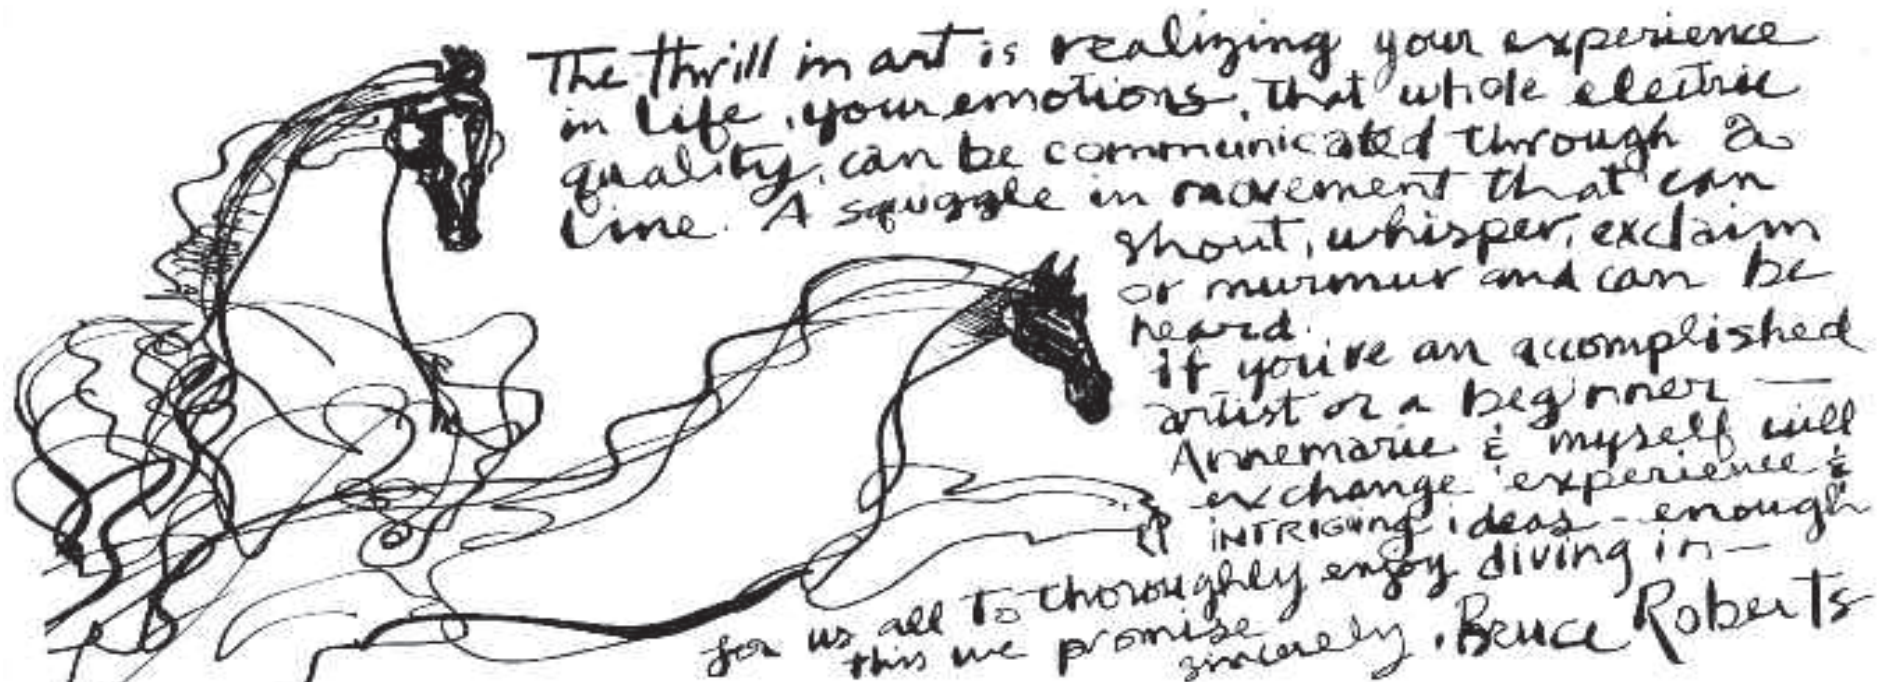 The thrill in art is realizing your experience
in life, your emotions, that whole electric
quality, can be communicated through a
line. A squggle in movement that can
shout, whisper, exclaim
or murmur and can be
heard.
if you're an accomplished
artist or a beginner —
Annemarie & myself will
exchange experience &
INTRIGUING ideas - enough
for us all to thoroughly enjoy diving in —
this we promise
sincerely, Bruce Roberts